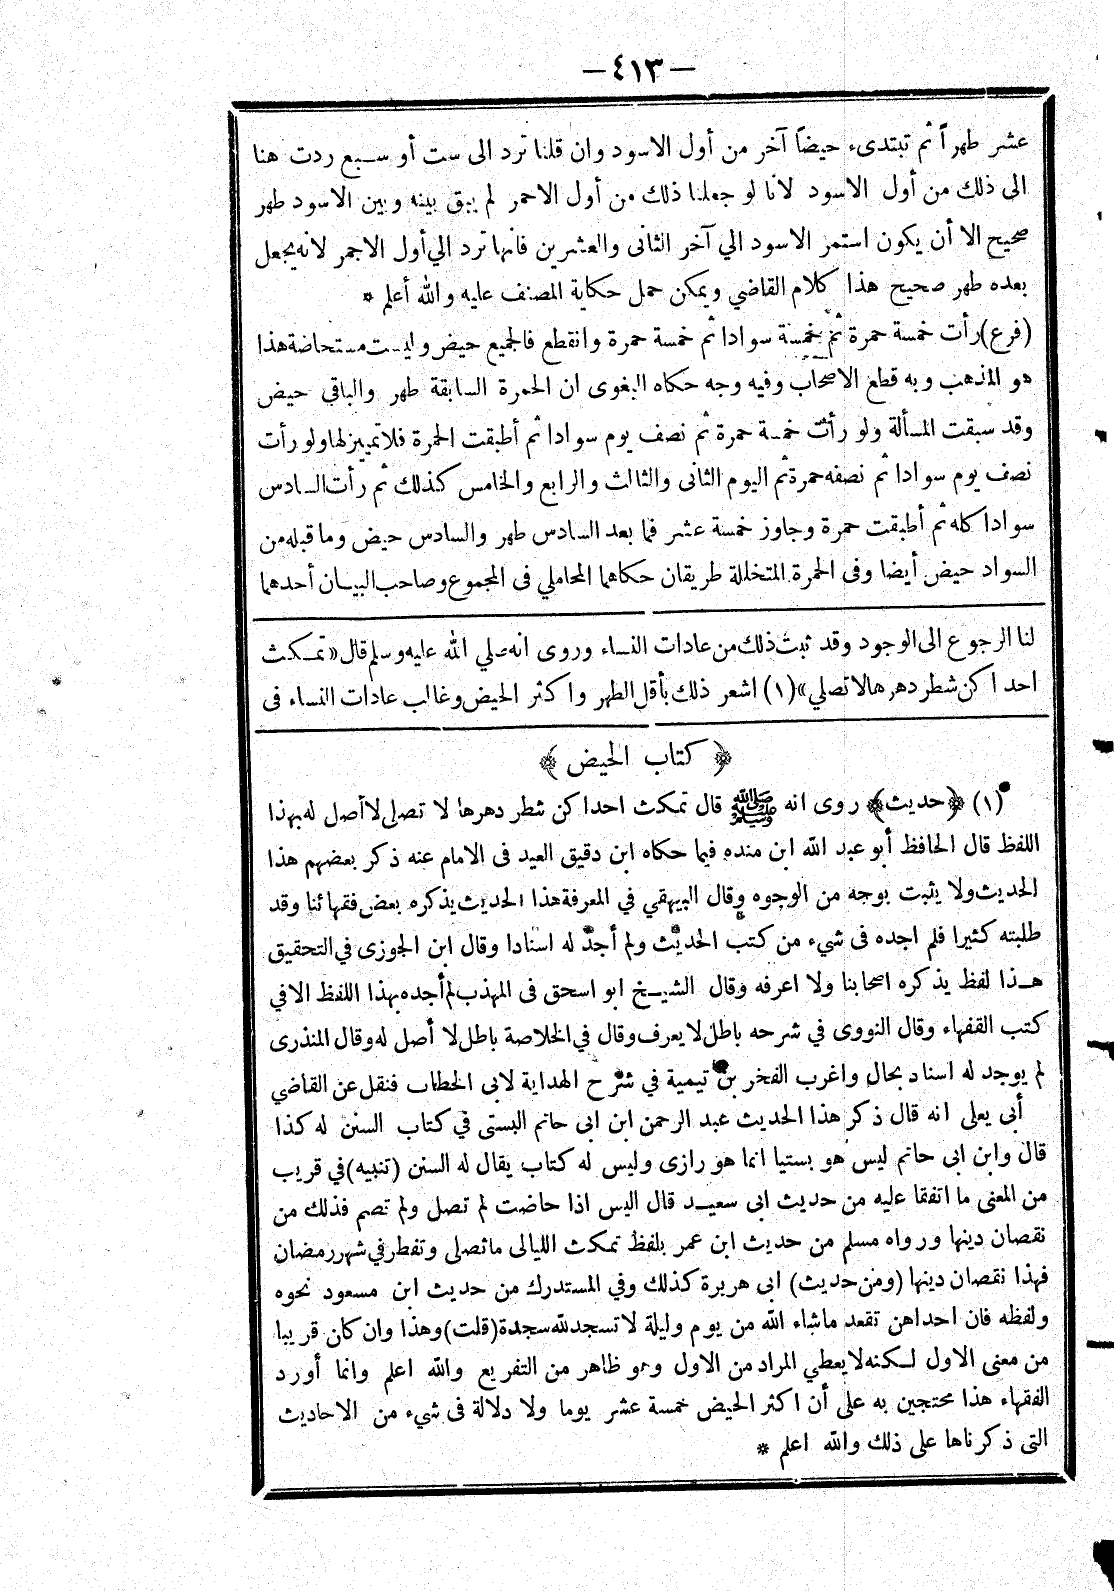 — ٤١٣ —
عشر طهراً ثم تبتدىء حيضاً آخر من أول الاسود وان قلنا ترد الى ست أو سبع ردت هنا
الى ذلك من أول الاسود لانا لو جعلنا ذلك من أول الاحمر لم يبق بينه وبين الاسود طهر
صحيح الا أن يكون استمر الاسود الي آخر الثانى والعشرين فانها ترد الي أول الاحمر لانه يجعل
بعده طهر صحيح هذا كلام القاضي ويمكن حمل حكاية المصنف عليه والله أعلم *
(فرع) رأت خمسة حمرة ثم خمسة سوادا ثم خمسة حمرة وانقطع فالجميع حيض وليست مستحاضة هذا
هو المذهب وبه قطع الاصحاب وفيه وجه حكاه البغوى ان الحمرة السابقة طهر والباقي حيض
وقد سبقت المسألة ولو رأت خمسة حمرة ثم نصف يوم سوادا ثم أطبقت الحمرة فلا تمييز لها ولو رأت
نصف يوم سوادا ثم نصفه حمرة ثم اليوم الثانى والثالث والرابع والخامس كذلك ثم رأت السادس
سوادا كله ثم أطبقت حمرة وجاوز خمسة عشر فما بعد السادس طهر والسادس حيض وما قبله من
السواد حيض أيضا وفى الحمرة المتخللة طريقان حكاهما المحاملي فى المجموع وصاحب البيان أحدهما
لنا الرجوع الى الوجود وقد ثبت ذلك من عادات النساء وروى انه صلي الله عليه وسلم قال «تمكث
احداكن شطر دهرها لا تصلي» (١) اشعر ذلك بأقل الطهر واكثر الحيض وغالب عادات النساء فى
﴿ كتاب الحيض ﴾
(١) ﴿حديث﴾ روى انه ﷺ قال تمكث احداكن شطر دهرها لا تصلى لا أصل له بهذا
اللفظ قال الحافظ أبو عبد الله ابن منده فيما حكاه ابن دقيق العيد فى الامام عنه ذكر بعضهم هذا
الحديث ولا يثبت بوجه من الوجوه وقال البيهقي في المعرفة هذا الحديث يذكره بعض فقهائنا وقد
طلبته كثيرا فلم اجده فى شيء من كتب الحديث ولم أجد له اسنادا وقال ابن الجوزى في التحقيق
هذا لفظ يذكره اصحابنا ولا اعرفه وقال الشيخ ابو اسحق فى المهذب لم أجده بهذا اللفظ الا في
كتب الفقهاء وقال النووى في شرحه باطل لا يعرف وقال في الخلاصة باطل لا أصل له وقال المنذرى
لم يوجد له اسناد بحال واغرب الفخر بن تيمية في شرح الهداية لابى الخطاب فنقل عن القاضي
أبى يعلى انه قال ذكر هذا الحديث عبد الرحمن ابن ابى حاتم البستى في كتاب السنن له كذا
قال وابن ابى حاتم ليس هو بستيا انما هو رازى وليس له كتاب يقال له السنن (تنبيه) في قريب
من المعنى ما اتفقا عليه من حديث ابى سعيد قال اليس اذا حاضت لم تصل ولم تصم فذلك من
نقصان دينها ورواه مسلم من حديث ابن عمر بلفظ تمكث الليالى ما تصلى وتفطر في شهر رمضان
فهذا نقصان دينها (ومن حديث) ابى هريرة كذلك وفي المستدرك من حديث ابن مسعود نحوه
ولفظه فان احداهن تقعد ماشاء الله من يوم وليلة لا تسجد لله سجدة (قلت) وهذا وان كان قريبا
من معنى الاول لكنه لا يعطي المراد من الاول وهو ظاهر من التفريع والله اعلم وانما أورد
الفقهاء هذا محتجين به على أن اكثر الحيض خمسة عشر يوما ولا دلالة فى شيء من الاحاديث
التى ذكرناها على ذلك والله اعلم *